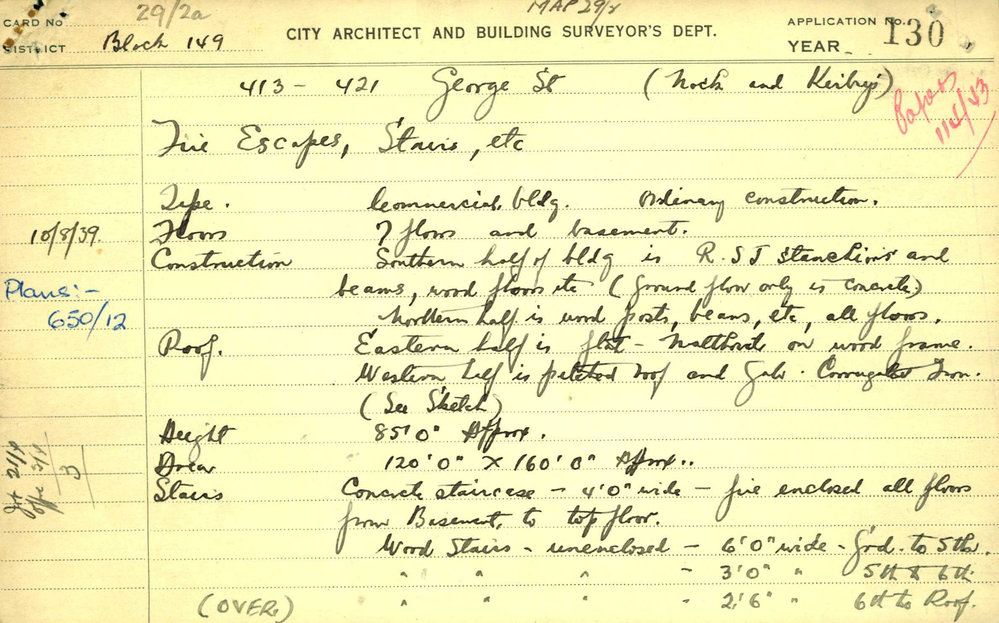 CARD No 29/2a MAP 29/2 APPLICATION No. 130
DISTRICT Block 149 CITY ARCHITECT AND BUILDING SURVEYOR'S DEPT. YEAR
413 – 421 George St (Nock and Kirby's)
Papers 1141/43
Fire Escapes, Stairs, etc
Type. Commercial bldg. Ordinary construction.
10/8/39. Floors 7 floors and basement.
Construction Southern half of bldg is R.S.J stanchions and
Plans:- beams, wood floors etc (Ground floor only is concrete)
650/12 Northern half is wood posts, beams, etc, all floors.
Roof. Eastern half is flat – Malthoid on wood frame.
Western half is pitched roof and Galv. Corrugated Iron.
(See Sketch)
Height 85'0" Approx.
Area 120'0" X 160'0" Approx..
3
Stairs Concrete staircase – 4'0" wide – fire enclosed all floors
from Basement to top floor.
Wood Stairs – unenclosed – 6'0" wide – Grd. to 5th.
" " " – 3'0" " 5th & 6th
(OVER) " " " – 2'6" " 6th to Roof.